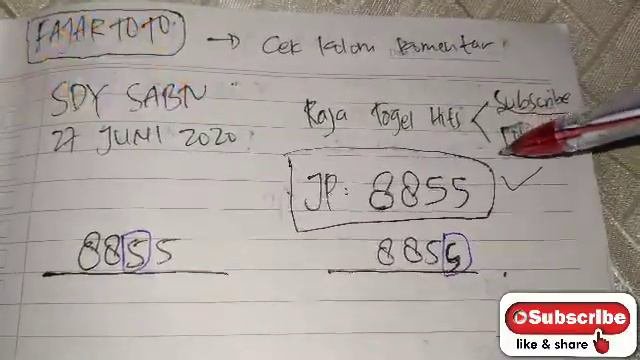 FAJARTOTO → Cek kolom komentar.
SDY SABN
27 JUNI 2020
Raja Togel Hits < Subscribe
JP: 8855 ✓
8855
8855
Subscribe
like & share